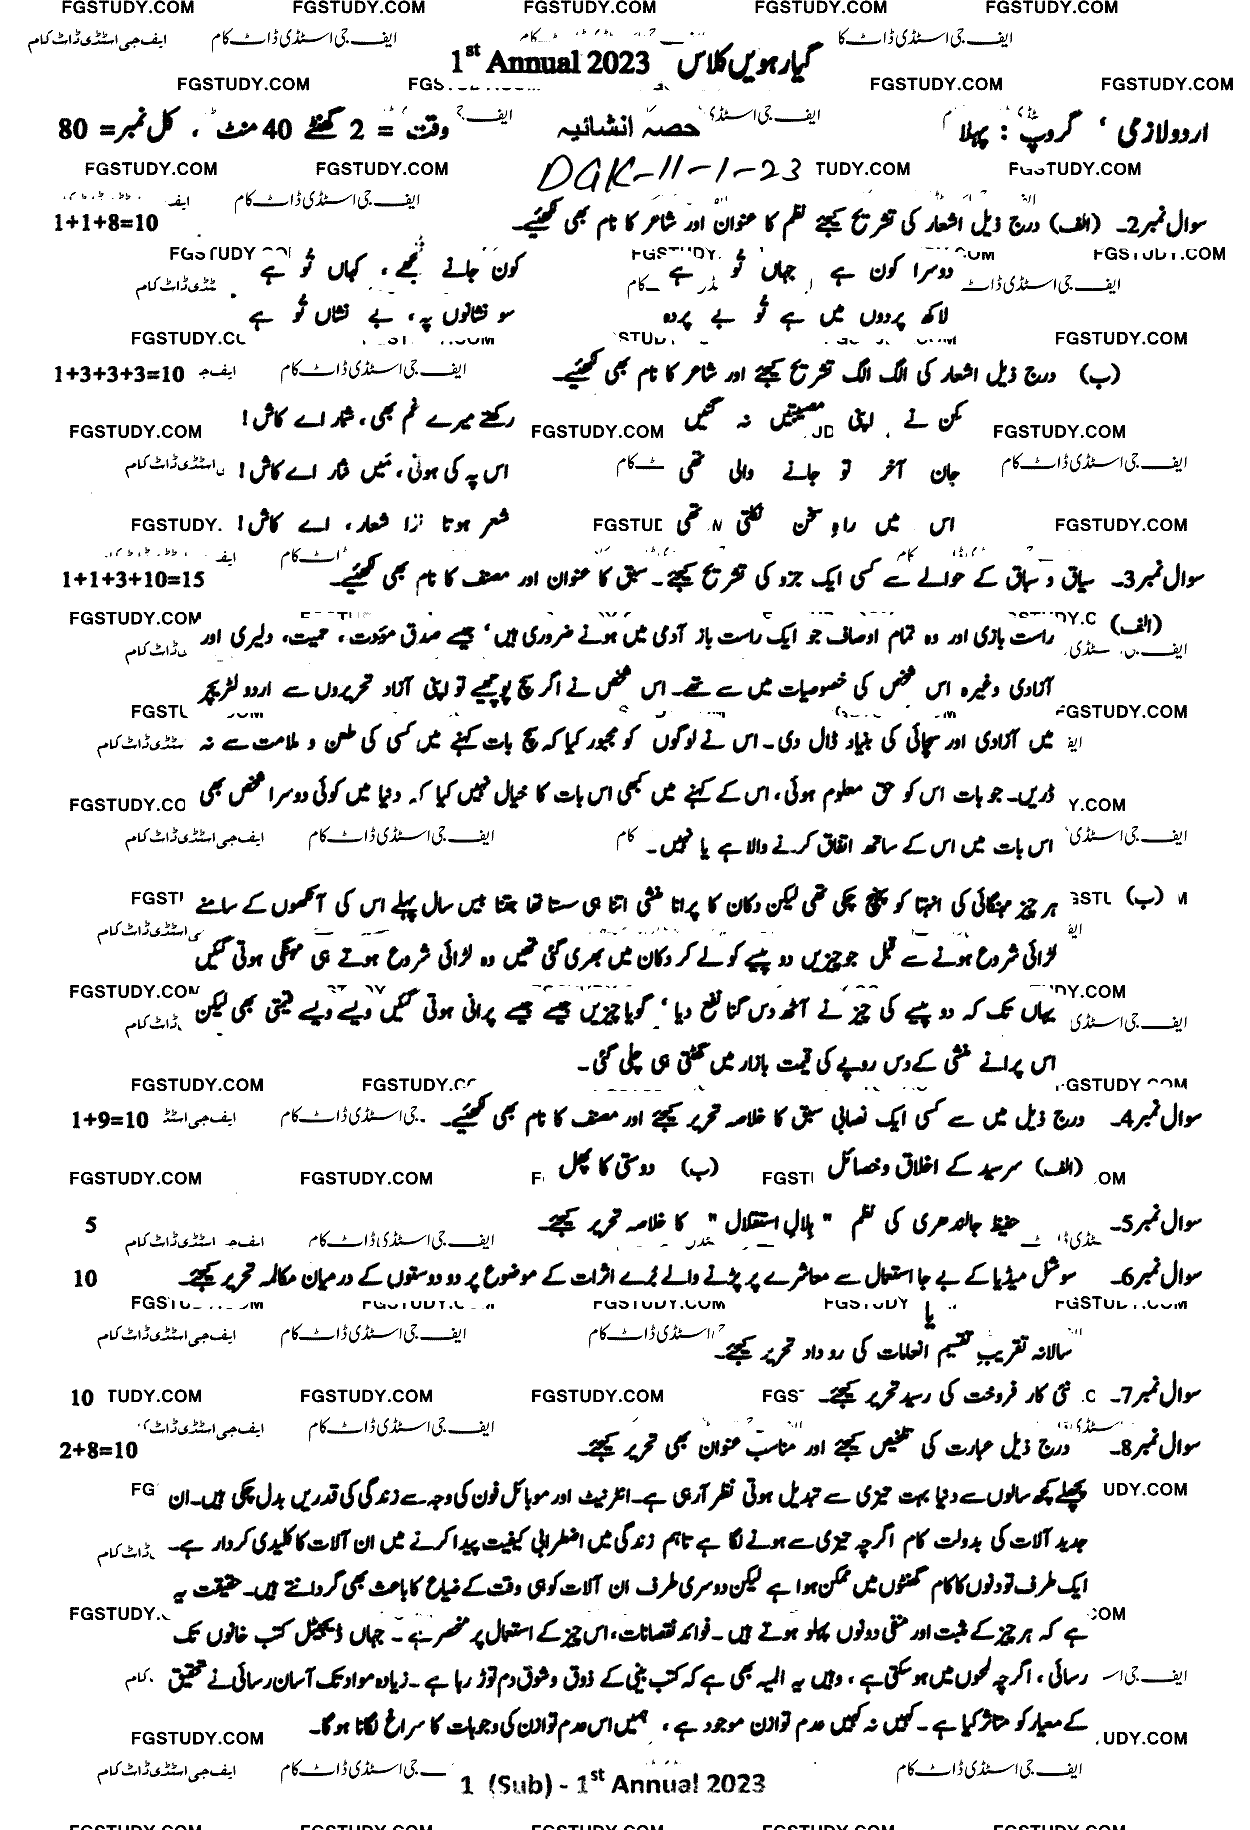 گیارہویں کلاس 1st Annual 2023
اردو لازمی ‘ گروپ : پہلا حصہ انشائیہ وقت = 2 گھنٹے 40 منٹ ، کل نمبر= 80
DGK-11-1-23
سوال نمبر2۔ (الف) درج ذیل اشعار کی تشریح کیجئے نظم کا عنوان اور شاعر کا نام بھی لکھیئے۔ 1+1+8=10
دوسرا کون ہے ، جہاں تُو ہے کون جانے تجھے ، کہاں تُو ہے
لاکھ پردوں میں ہے تُو بے پردہ سو نشانوں پہ، بے نشاں تُو ہے
(ب) درج ذیل اشعار کی الگ الگ تشریح کیجئے اور شاعر کا نام بھی لکھیئے۔ 1+3+3+3=10
کن نے ، اپنی مصیبتیں نہ گنیں رکھتے میرے غم بھی، شمار اے کاش!
جان آخر تو جانے والی تھی اس پہ کی ہوتی، مَیں نثار اے کاش!
اس میں راہِ سخن نکلتی تھی شعر ہوتا ترا شعار، اے کاش!
سوال نمبر3۔ سیاق و سباق کے حوالے سے کسی ایک جزو کی تشریح کیجئے۔ سبق کا عنوان اور مصنف کا نام بھی لکھیئے۔ 1+1+3+10=15
(الف) راست بازی اور وہ تمام اوصاف جو ایک راست باز آدمی میں ہونے ضروری ہیں‘ جیسے صدق مؤدت، حمیت، دلیری اور
آزادی وغیرہ اس شخص کی خصوصیات میں سے تھے۔ اس شخص نے اگر سچ پوچھیے تو اپنی آزاد تحریروں سے اردو لٹریچر
میں آزادی اور سچائی کی بنیاد ڈال دی۔ اس نے لوگوں کو مجبور کیا کہ سچ بات کہنے میں کسی کی طعن و ملامت سے نہ
ڈریں۔ جو بات اس کو حق معلوم ہوئی، اس کے کہنے میں کبھی اس بات کا خیال نہیں کیا کہ دنیا میں کوئی دوسرا شخص بھی
اس بات میں اس کے ساتھ اتفاق کرنے والا ہے یا نہیں۔
(ب) ہر چیز مہنگائی کی انتہا کو پہنچ چکی تھی لیکن دکان کا پرانا منشی اتنا ہی سستا تھا جتنا بیس سال پہلے اس کی آنکھوں کے سامنے
لڑائی شروع ہونے سے قبل جو چیزیں دو پیسے کو لے کر دکان میں بھری گئی تھیں وہ لڑائی شروع ہوتے ہی مہنگی ہوتی گئیں
یہاں تک کہ دو پیسے کی چیز نے آٹھ دس گنا نفع دیا‘ گویا چیزیں جیسے جیسے پرانی ہوتی گئیں ویسے ویسے قیمتی بھی لیکن
اس پرانے منشی کے دس روپے کی قیمت بازار میں گھٹتی ہی چلی گئی۔
سوال نمبر4۔ درج ذیل میں سے کسی ایک نصابی سبق کا خلاصہ تحریر کیجئے اور مصنف کا نام بھی لکھیئے۔ 1+9=10
(الف) سرسید کے اخلاق و خصائل (ب) دوستی کا پھل
سوال نمبر5۔ حفیظ جالندھری کی نظم " ہلالِ استقلال " کا خلاصہ تحریر کیجئے۔ 5
سوال نمبر6۔ سوشل میڈیا کے بے جا استعمال سے معاشرے پر پڑنے والے بُرے اثرات کے موضوع پر دو دوستوں کے درمیان مکالمہ تحریر کیجئے۔ 10
یا
سالانہ تقریبِ تقسیم انعامات کی روداد تحریر کیجئے۔
سوال نمبر7۔ نئی کار فروخت کی رسید تحریر کیجئے۔ 10
سوال نمبر8۔ درج ذیل عبارت کی تلخیص کیجئے اور مناسب عنوان بھی تحریر کیجئے۔ 2+8=10
پچھلے کچھ سالوں سے دنیا بہت تیزی سے تبدیل ہوتی نظر آرہی ہے۔ انٹرنیٹ اور موبائل فون کی وجہ سے زندگی کی قدریں بدل چکی ہیں۔ ان
جدید آلات کی بدولت کام اگرچہ تیزی سے ہونے لگا ہے تاہم زندگی میں اضطرابی کیفیت پیدا کرنے میں ان آلات کا کلیدی کردار ہے۔
ایک طرف تو دنوں کا کام گھنٹوں میں ممکن ہوا ہے لیکن دوسری طرف ان آلات کو ہی وقت کے ضیاع کا باعث بھی گردانتے ہیں۔ حقیقت یہ
ہے کہ ہر چیز کے مثبت اور منفی دونوں پہلو ہوتے ہیں۔ فوائد نقصانات، اس چیز کے استعمال پر منحصر ہے ۔ جہاں ڈیجیٹل کتب خانوں تک
رسائی ، اگرچہ لمحوں میں ہو سکتی ہے ، وہیں یہ المیہ بھی ہے کہ کتب بینی کے ذوق و شوق دم توڑ رہا ہے ۔ زیادہ مواد تک آسان رسائی نے تحقیق
کے معیار کو متاثر کیا ہے ۔ کہیں نہ کہیں عدم توازن موجود ہے ، ہمیں اس عدم توازن کی وجوہات کا سراغ لگانا ہو گا۔
1 (Sub) - 1st Annual 2023